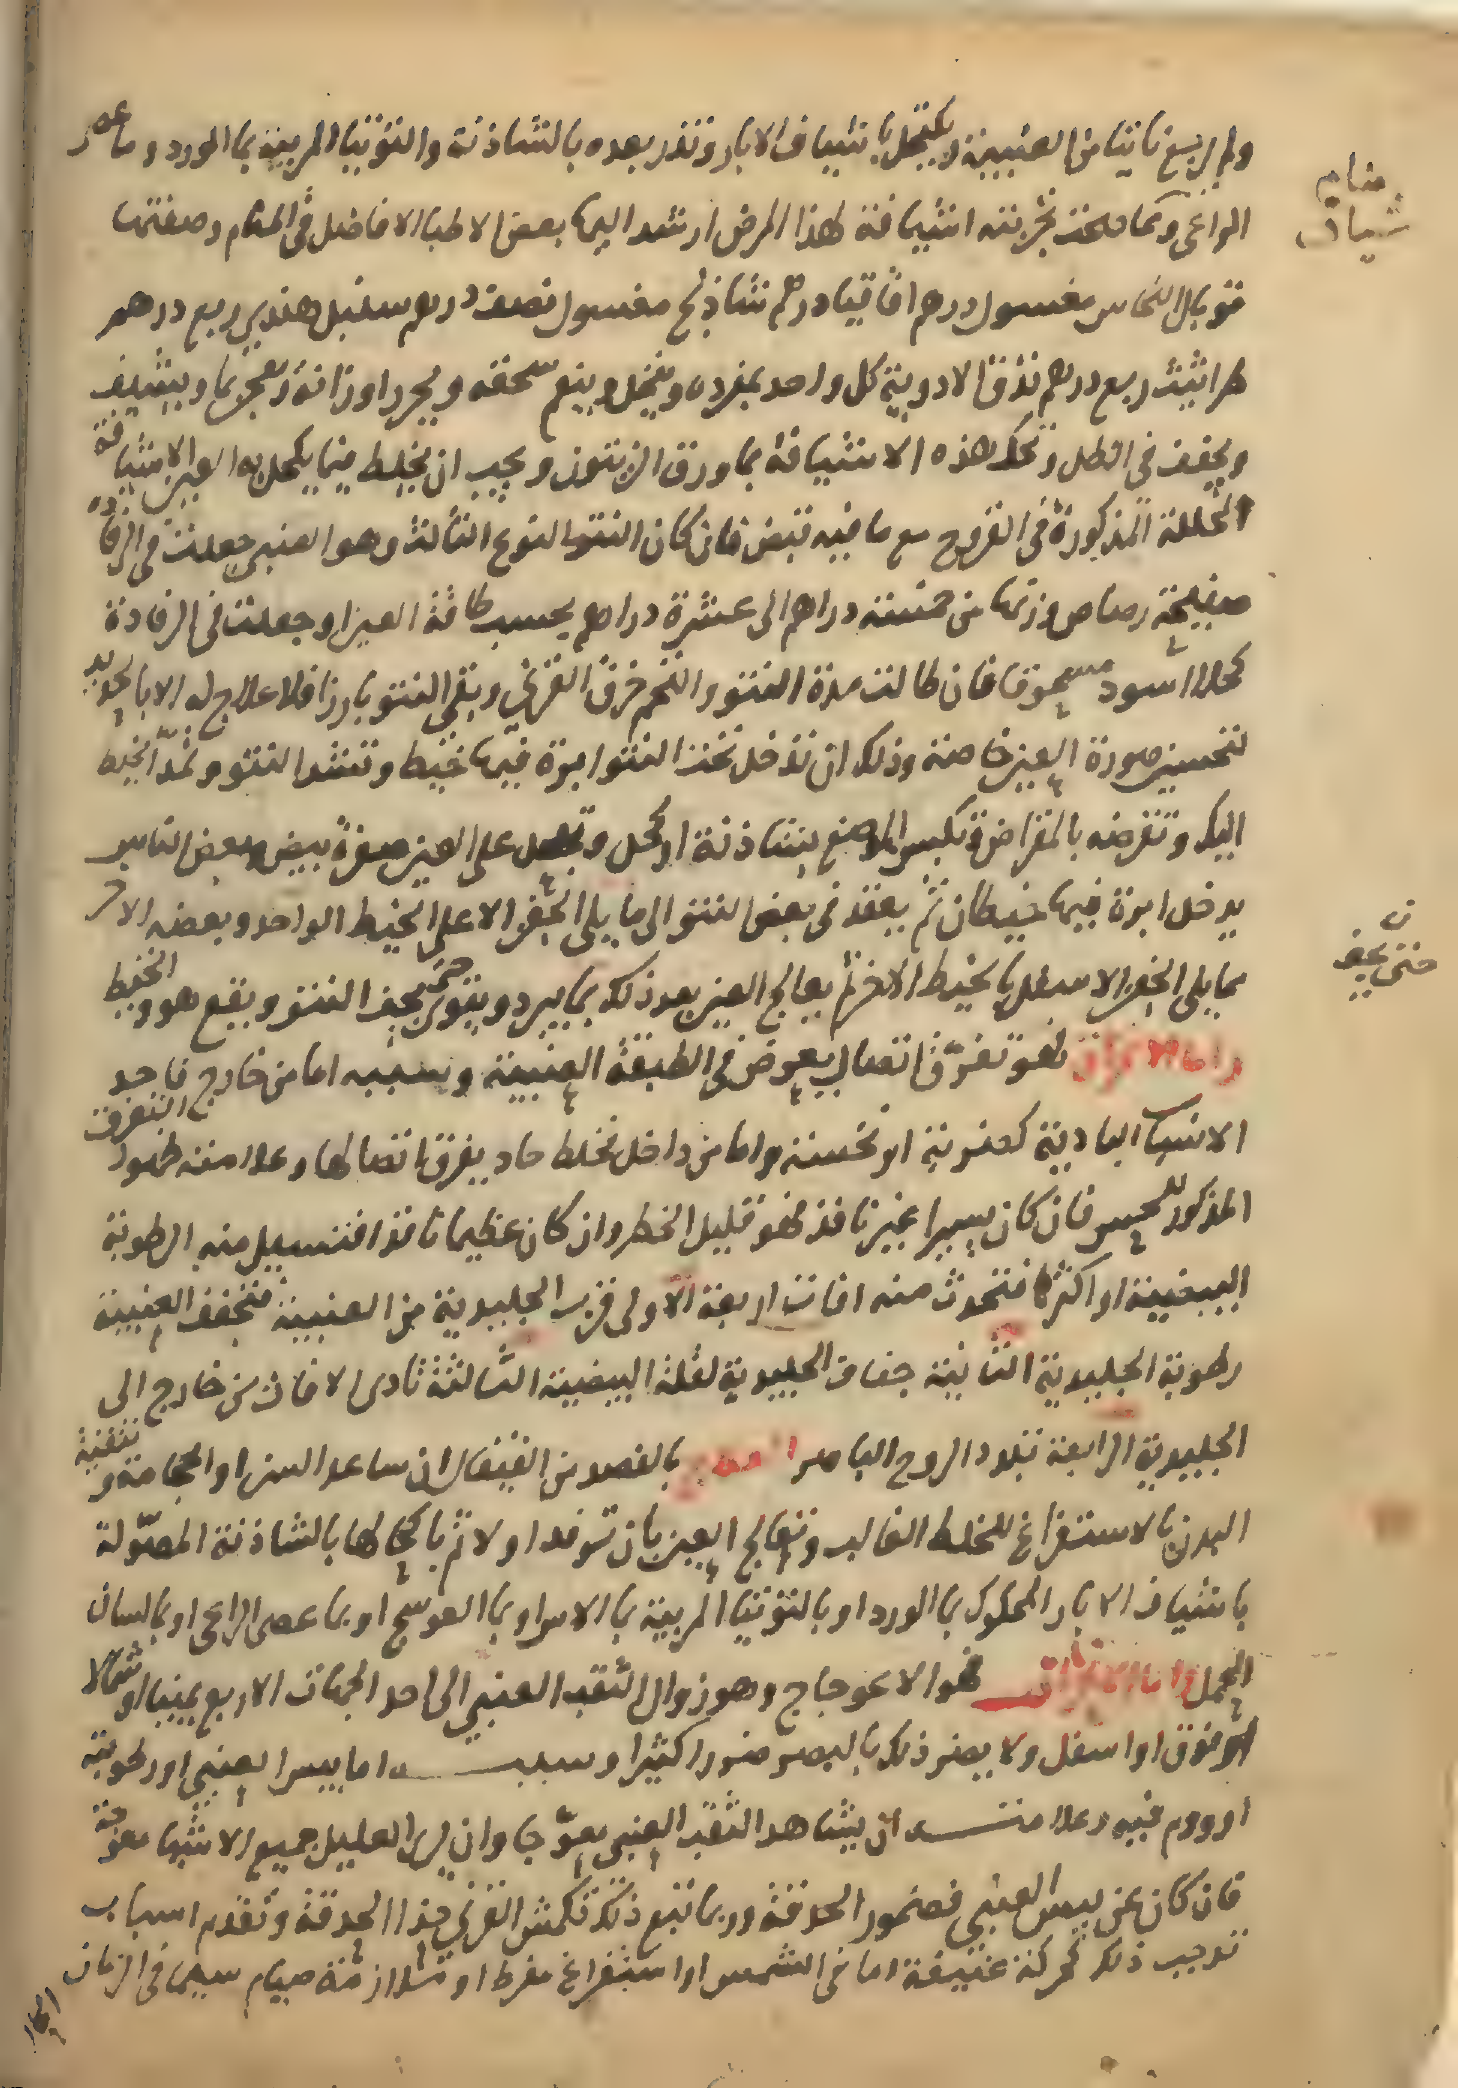 ولم يربع نابتا من العنبية ويكتحل باشياف الابار وتذر بعده بالشاذنة والتوتيا المربية بما الورد وما عصى
الراعي ومما صحت تجربته اشيافة لهذا المرض ارشد اليها بعض الاطبا الافاضل في المنام وصفتها
توبال النحاس مغسول درهم اقاقيا درهم شاذنج مغسول نصف درهم سنبل هندي ربع درهم
طراثيث ربع درهم تدق الادوية كل واحد بمفرده وينخل وينعم سحقه ويحرر اوزانه ويعجن بما ويشيف
ويجفف في الظل وتحك هذه الاشيافة بما ورق الزيتون ويجب ان يخلط فيما يكحل به العين الاشيافة
المحللة المذكورة في القروح مع ما فيه قبض فان كان النتو النوع الثالث وهو العنبي جعلت في الرفادة
صفيحة رصاص وزنها من خمسة دراهم الى عشرة دراهم بحسب طاقة العين او جعلت في الرفادة
كحلا اسود مسحوقا فان طالت مدة النتو والتحم خرق القرني وبقي النتو بارزا فلا علاج له الا بالحديد
لتحسين صورة العين خاصة وذلك ان تدخل تحت النتو ابرة فيها خيط وتشد النتو وتمد الخيط
اليك وتقرضه بالمقراض وتكبس الموضع بشاذنة او كحل وتجعل على العين صفرة بيض وبعض الناس
يدخل ابرة فيها خيطان ثم يعقد في بعض النتو الى ما يلي الجفن الاعلى الخيط الواحد وبعضه الاخر
مما يلي الجفن الاسفل بالخيط الاخر ثم يعالج العين بعد ذلك بما يبرد ويقوي حتى يجف النتو ويقع هو والخيط
واما الانخراق فهو تفرق اتصال يعرض في الطبقة العنبية وسببه اما من خارج فاحد
الاسباب البادية كضربة او نخسة واما من داخل فخلط حاد يفرق اتصالها وعلامته ظهور التفرق
المذكور للحس فان كان يسيرا غير نافذ فهو قليل الخطر وان كان عظيما نافذا فتسيل منه الرطوبة
البيضية او اكثرها فتحدث منه افات اربعة الاولى قرب الجليدية من العنبية فتجفف العنبية
رطوبة الجليدية الثانية جفاف الجليدية لقلة البيضية الثالثة تادى الافات من خارج الى
الجليدية الرابعة تبدد الروح الباصر العلاج بالفصد من القيفال ان ساعد السن او الحجامة وتنقية
البدن بالاستفراغ للخلط الغالب وتعالج العين بان ترفد اولا ثم باكحالها بالشاذنة المصولة
باشياف الابار المحكوك بما الورد او بالتوتيا المربية بما الاس او بما العوسج او بما عصى الراعي او بما لسان
الحمل واما الانحراف فهو الاعوجاج وهو زوال الثقب العنبي الى احد الجهات الاربع يمينا او شمالا
او فوق او اسفل ولا يضر ذلك بالبصر ضررا كثيرا وسببه اما يبس العنبي او رطوبته
او ورم فيه وعلامته ان يشاهد الثقب العنبي معوجا وان يرى العليل جميع الاشيا معوجة
فان كان عن يبس العنبي فضمور الحدقة وربما تبع ذلك تكمش القرني حذا الحدقة وتقدم اسباب
توجب ذلك كحركة عنيفة اما في الشمس او استفراغ مفرط او ملازمة صيام سيما في الزمان
الحار
منام
شياف
ن
حتى يجف